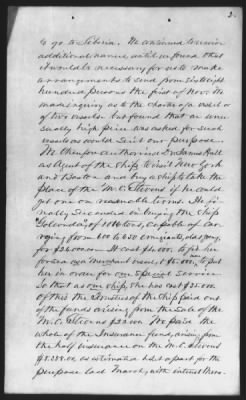 2.
to go to Liberia. We continued to receive
additional names until we found that
it would be necessary for us to make
arrangements to send from six to eight
hundred persons the first of Nov. We
made inquiry as to the charter of a vessel or
of two vessels but found that an unu
sually high price was asked for such
vessels as would suit our purpose.
We therefore authorized Dr James Hall
as Agent of the Ship to visit New York
and Boston and buy a ship to take the
place of the M. C. Stevens if he could
get one on reasonable terms. He fi
nally succeeded in buying the Ship
"Golconda" of 1016 tons, capable of car
rying from 600 to 650 emigrants,
for $26,000. It cost to fit her
for sea as a merchant vessel, & to put
her in order for our special service
So that as our ship, she has cost $
Of this the Trustees of the Ship paid out
of the funds arising from the sale of the
M. C. Stevens We paid the
whole of the Insurance fund, arising from
the half insurance on the M. C. Stevens
as estimated & set apart for the
purpose last March, with interest